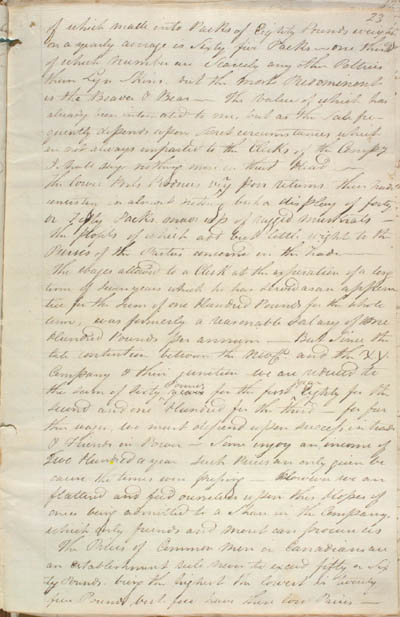 23
of which made into Packs of Eighty Pounds weight
on a yearly average is Sixty five Packs — one third
of which number are scarcely any other Peltries
than Lynx Skins, but the most Predominent
is the Beaver & Bear — The Value of which has
already been to me, but as the Sale fre-
quently depends upon circumstances which
are not always imparted to the Clerks of the Company
I shall say nothing more on that Head —
the lower Posts Produces very Poor returns, their trade
consisting in almost nothing but a display of forty
or Fifty Packs made up of ragged Musrats —
the Profits of which add but little weight to the
Purses of the Parties concerned in the Trade —
The wages allowed to a Clerk at the expiration of a long
term of years which he has served as an appren-
tice for the Sum of one Hundred Pounds for the whole
term, was formerly a reasonable Salary of one
Hundred Pounds per annum — But Since the
late contention between the and the X.Y.
Company & their junction we are reduced to
the Sum of Sixty Pounds for the first year Eighty for the
second and one Hundred for the third — for fur
ther wages we must depend upon success in trade
& Friends in Power — Some enjoy an income of
Two Hundred a year such Prices are only given be
cause the times were pressing — However we are
flattered and feed ourselves upon the Hopes of
once being admitted to a Share in the Company
which only friends and merit can procure us
The Prices of Common Men or Canadians are
on establishment rule never to exceed fifty or Six
ty Pounds being the highest the lowest is Twenty
five Pounds, but few have these low Prices —